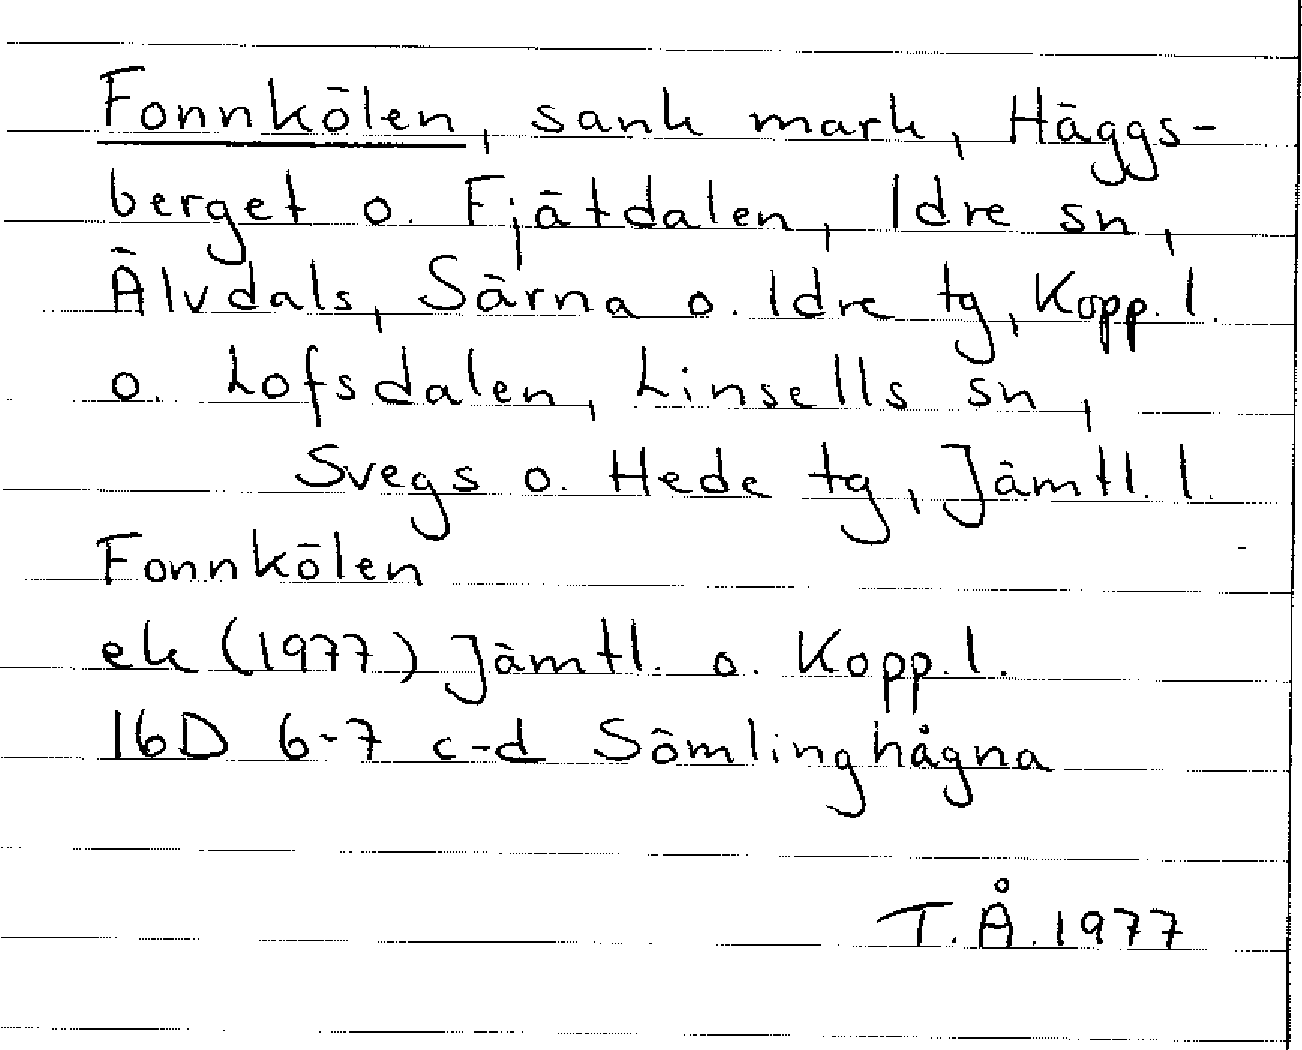 Fonnkölen, sank mark, Häggs-
berget o. Fjätdalen, Idre sn,
Älvdals, Särna o. Idre tg, Kopp. l.
o. Lofsdalen, Linsells sn,
Svegs o. Hede tg, Jämtl. l.
Fonnkölen
ek (1977) Jämtl. o. Kopp. l.
16D 6-7 c-d Sömlinghågna
T.Å. 1977